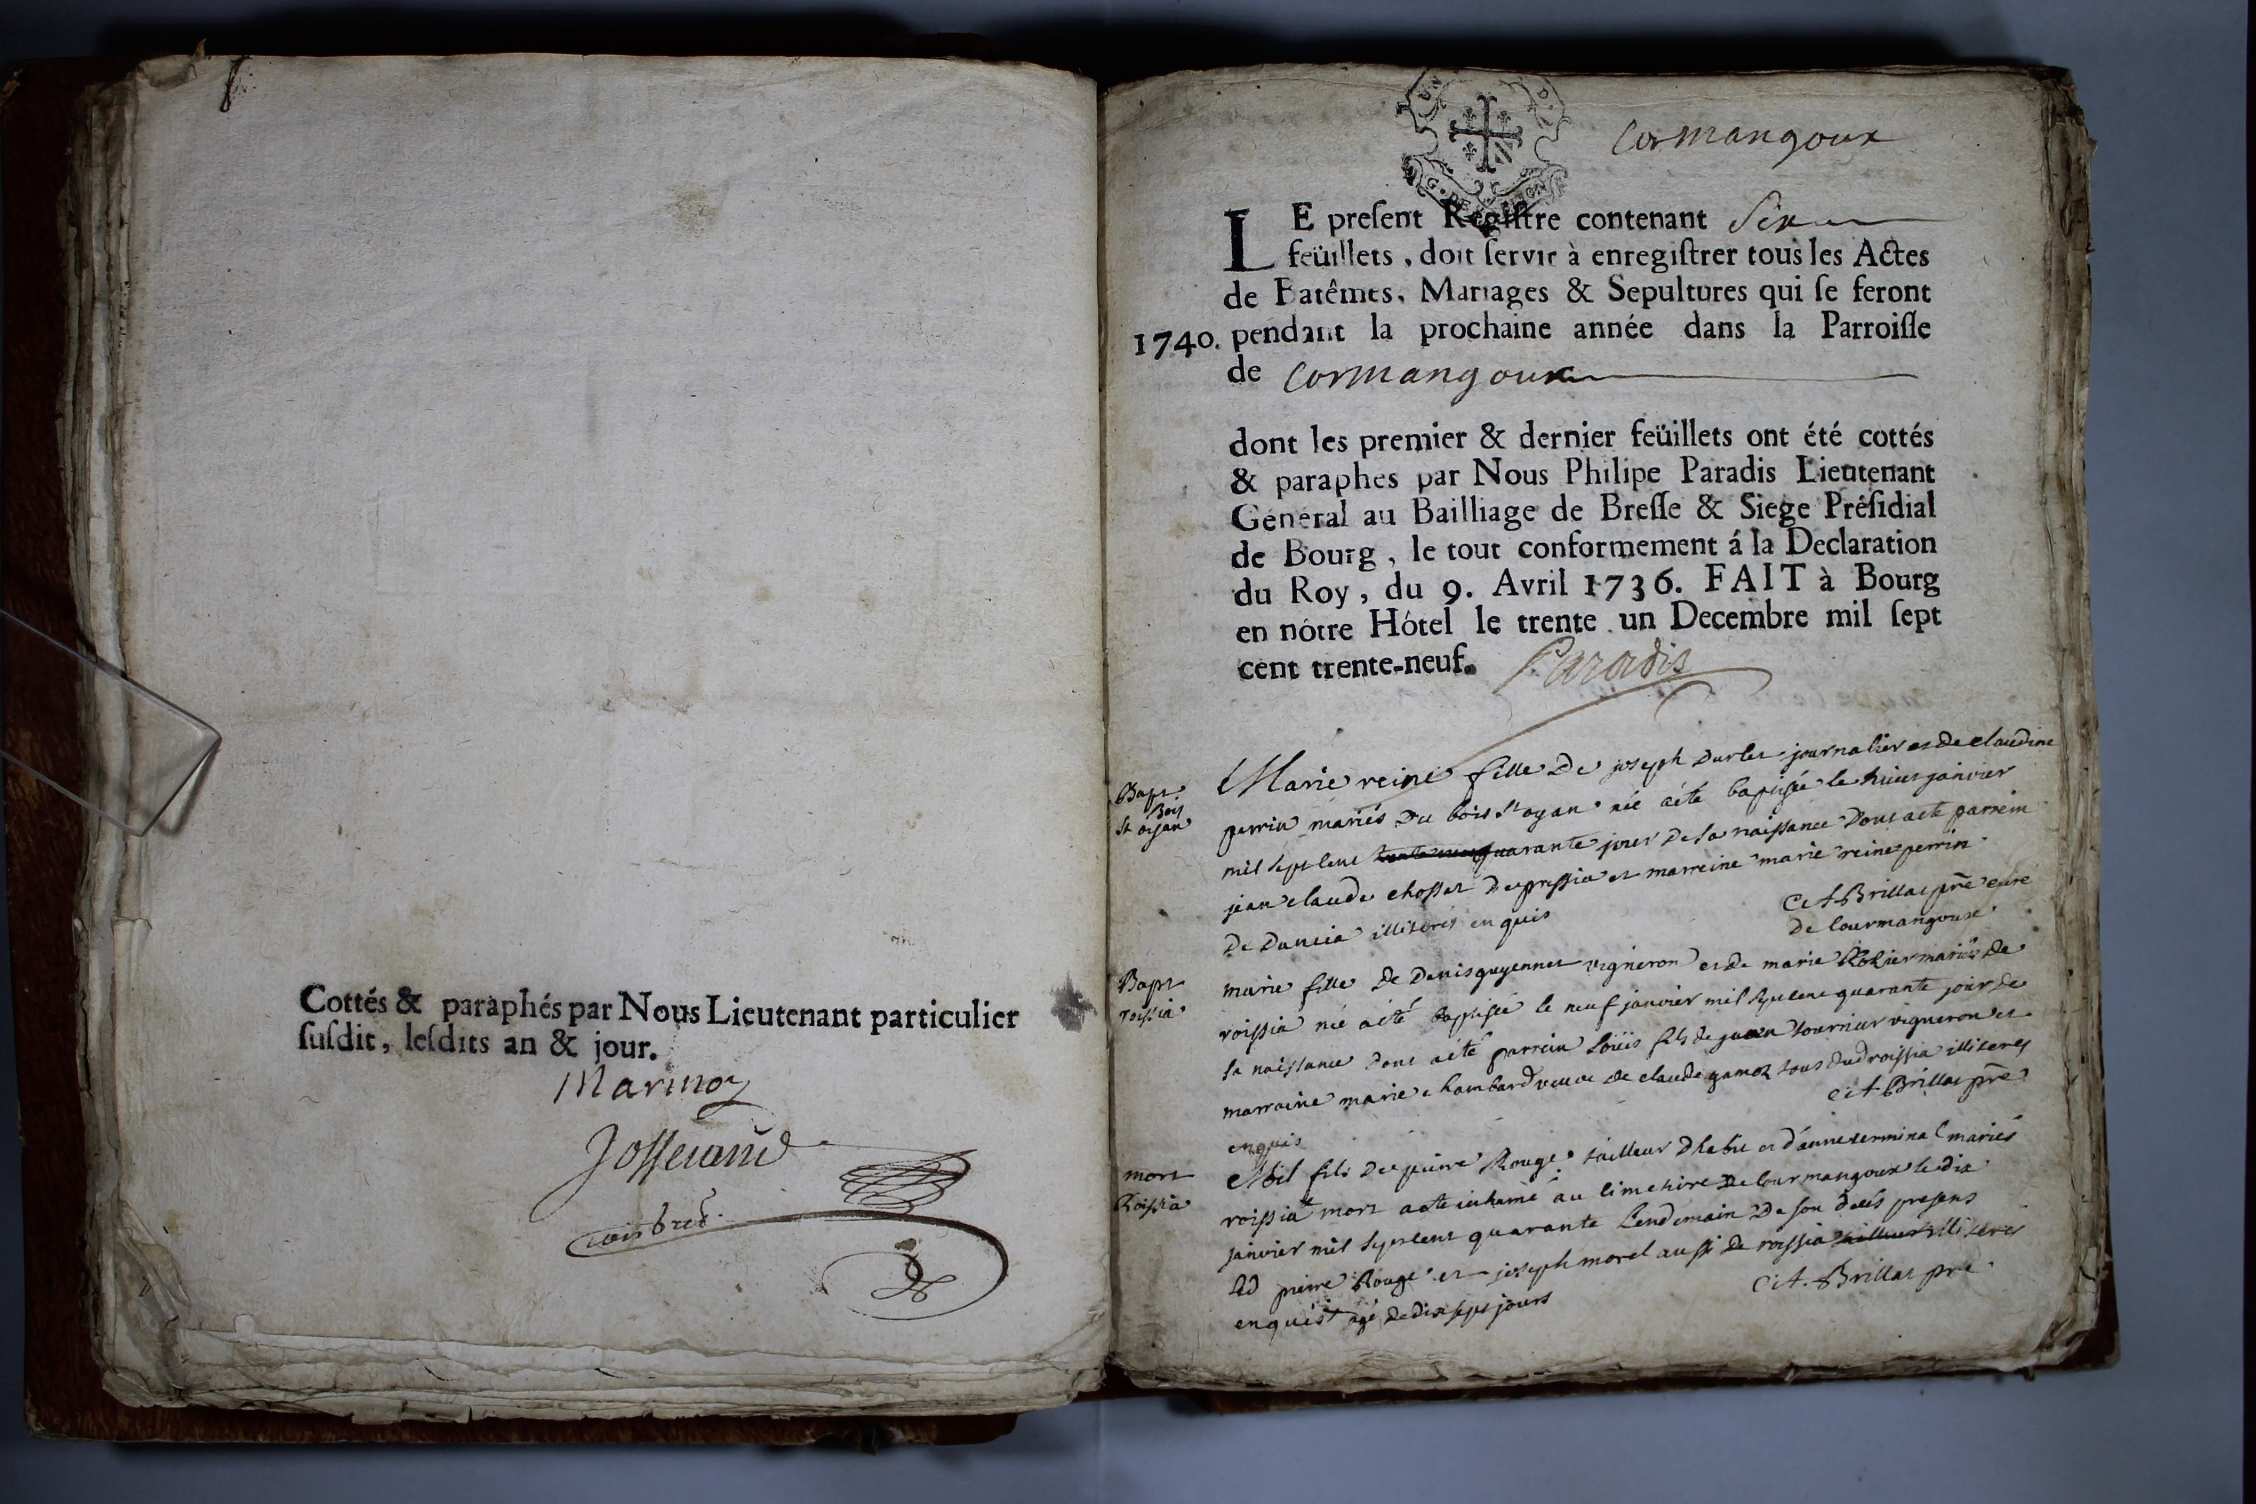 Cottés & paraphés par Nous Lieutenant particulier
susdit, lesdits an & jour.
Marinon
Josserand
Cormangoux
LE present Registre contenant Six
feüillets, doit servir à enregistrer tous les Actes
de Batêmes, Mariages & Sepultures qui se feront
1740. pendant la prochaine année dans la Parroisse
de Cormangoux
dont les premier & dernier feüillets ont été cottés
& paraphes par Nous Philipe Paradis Lieutenant
Général au Bailliage de Bresse & Siege Présidial
de Bourg, le tout conformement á la Declaration
du Roy, du 9. Avril 1736. FAIT à Bourg
en nôtre Hôtel le trente un Decembre mil sept
cent trente-neuf.
Paradis
Bapt
Bois
st oyan
Marie reine fille De joseph Durlet journalier et de claudine
perrin mariés Du bois st oyan née a été baptisée le huict janvier
mil sept cent quarante jour De sa naissance Dont a eté parrein
jean claude chosset De pressia et marreine marie reine perrin
De Dancia illiterés enquis
C. A Brillat pre curé
de Courmangoux
Bapt
roissia
marie fille De Denis guyennet vigneron et de marie mariés de
roissia née a été baptisée le neuf janvier mil sept cent quarante jour de
sa naissance Dont a eté parrein Loüis fils de tournier vigneron et
marraine marie chambard veuve de claude gamoz tous dud roissia illiterés
enquis
C. A Brillat pre
mort
Roissia
fils De pierre Rouge tailleur Dhabit et d'anne terminal mariés
roissia mort a eté inhumé au cimetiere De Courmangoux le dix
janvier mil sept cent quarante Lendemain De son decés presens
led pierre Rouge et joseph morel aussi de roissia illiterés
enquis agé de dix sept jours
C. A. Brillat pre